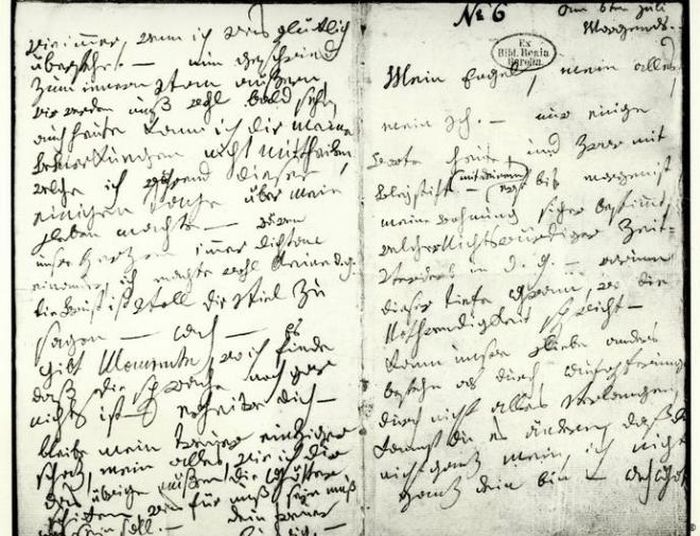 wie immer, wenn ich was glücklich
überstehe. — nun geschwind
zum innern vom äußern,
wir werden unß wohl bald sehn,
auch heute kann ich dir meine
Bemerkungen nicht mittheilen,
welche ich während dieser
einigen Tage über mein
Leben machte — wären
unsre Herzen immer dicht an
einander, ich machte wohl keine d.g.
die Brust ist voll dir viel zu
sagen — Ach — Es
gibt Momente, wo ich finde
daß die sprache noch gar
nichts ist — erheitre dich —
bleibe mein treuer einziger
schaz, mein alles, wie ich dir
das übrige müßen die Götter
schicken, was für unß seyn muß
und seyn soll. — dein treuer
ludwig. —
No 6
Am 6ten Juli
Morgends. —
Ex
Bibl. Regia
Berolin.
Mein Engel, mein alles,
mein Ich. — nur einige
Worte heute, und zwar mit
Bleystift — (mit deinem)
erst bis morgen ist
meine Wohnung sicher bestimmt,
welcher Nichtswürdiger Zeit-
verderb in d.g. — warum
dieser tiefe Gram, wo die
Nothwendigkeit spricht —
Kann unsre Liebe anders
bestehn als durch Aufopferungen,
durch nicht alles verlangen,
kannst du es ändern, daß du
nicht ganz mein, ich nicht
ganz dein bin — Ach Gott